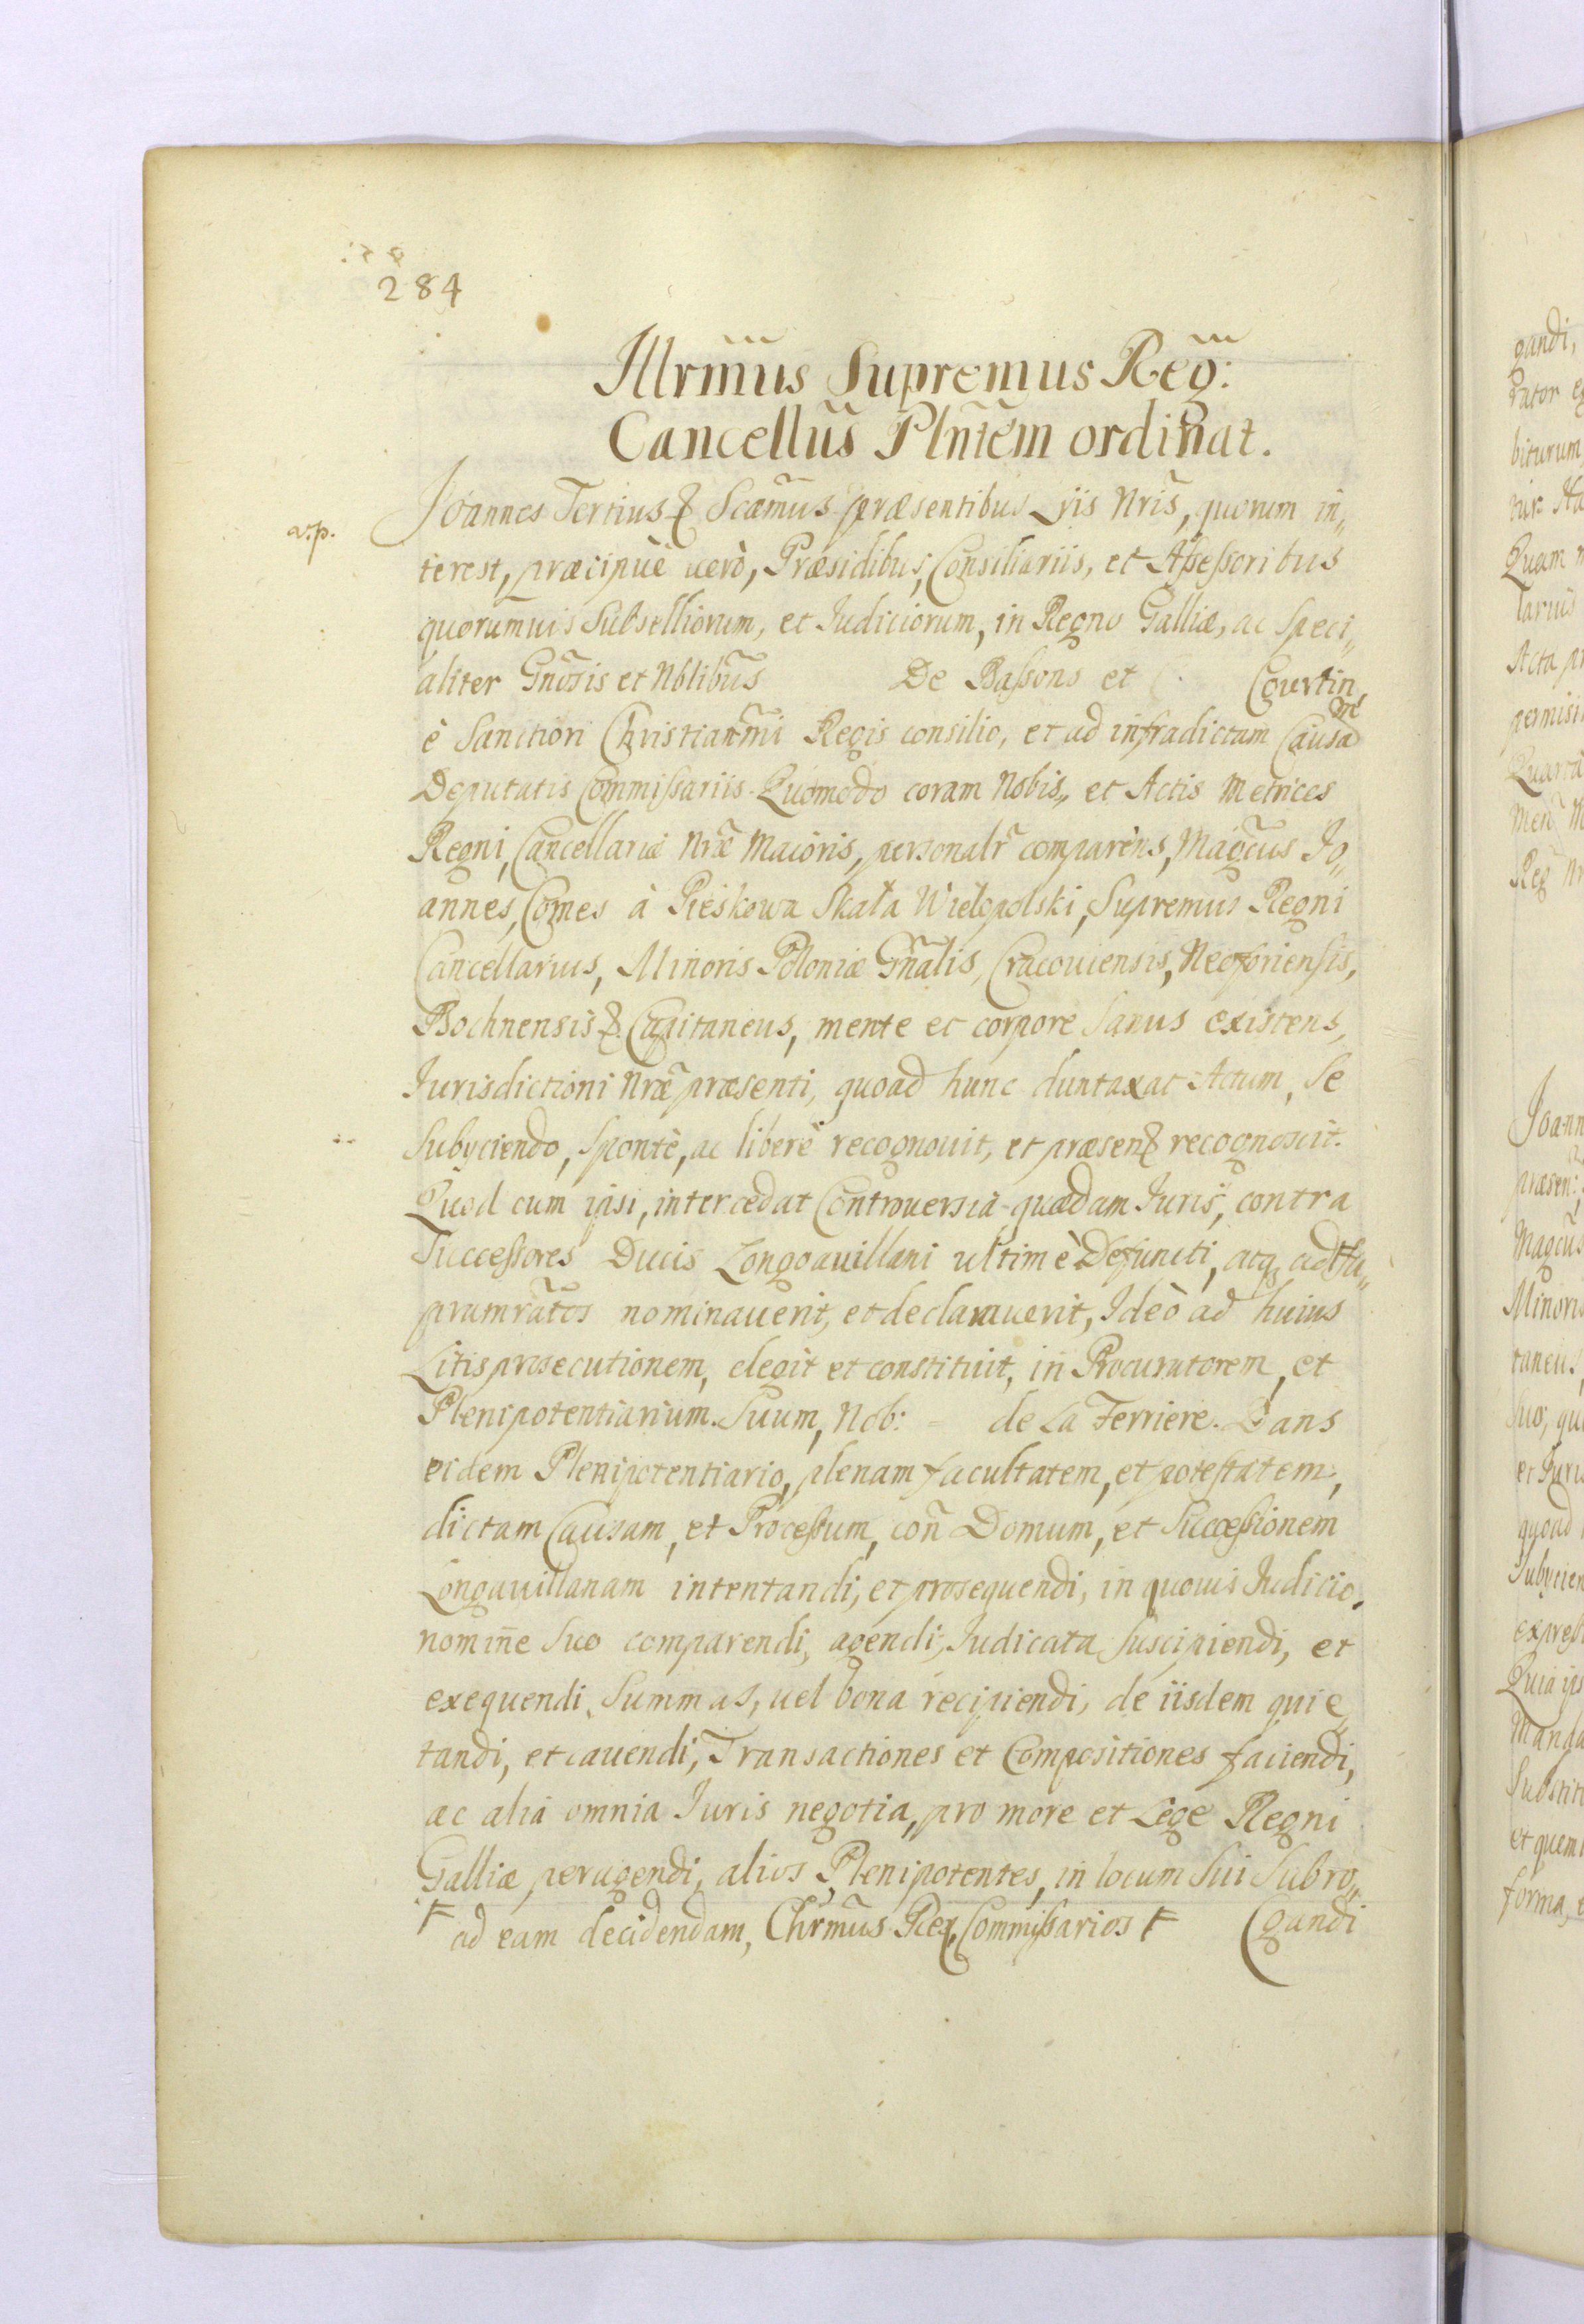 284
Illrm̃us Supremus Reg̃:
Cancellũs Plñtem ordinat.
Joannes Tertius & Scãmus præsentibus Lr̃is Nr̃is, quorum in„
v.p.
terest, præcipuè uerò, Præsidibus, Consiliariis, et Assessoribus
quorumuis Subselliorum, et Judiciorum, in Regno Galliæ, ac Speci„
aliter Gñosis et Nblibũs De Bassons et Courtin,
è Sanctiori Christianm̃i Regis consilio, et ad infradictam Causa
m̃
Deputatis Commissariis. Quomodo coram Nobis, et Actis Metrices
Regni, Cancellariæ Nræ̃ Maioris, personalr̃ comparens, Magc̃us Jo„
annes, Comes à Pieskowa Skała Wielopolski, Supremus Regni
Cancellarius, Minoris Poloniæ Gñalis, Cracouiensis, Neoforiensis,
Bochnensis & Capitaneus, mente et corpore Sanus existens,
Jurisdictioni Nræ̃ præsenti, quoad hunc duntaxat Actum, Se
Subyciendo, Spontè, ac liberè recognouit, et præsen& recognoscit.
Quod cum ipsi, intercedat Controuersia quædam Juris, contra
Successores Ducis Longoauillani ultimè Defuncti, atq, ad Ⱶ su„
pranrãtos nominauerit, et declarauerit, Ideò ad huius
Litis prosecutionem, elegit et constituit, in Procuratorem, et
Plenipotentiarium Suum, Nob: = de La Ferriere. Dans
eidem Plenipotentiario, plenam facultatem, et potestatem,
dictam Causam, et Processum, coñ Domum, et Successionem
Longauillanam intentandi, et prosequendi, in quouis Judicio,
nomiñe Suo comparendi, agendi, Judicata Suscipiendi, et
exequendi, Summas, uel bona recipiendi, de iisdem quie„
tandi, et cauendi, Transactiones et Compositiones faciendi,
ac alia omnia Juris negotia, pro more et Lege Regni
Galliæ peragendi, alios Plenipotentes, in locum Sui Subro„
Ⱶ ad eam decidendam, Chrm̃us Rex, Commissarios Ⱶ (gandi
gandi,
biturum
Quam
Acta
permisi
Reg
Joann
præsen:
Magcũs
Minoris
taneus
Suo, qu
et Juris
quoad
Subycien
express
Quia ips
Manda
Substit
et quem
forma, e